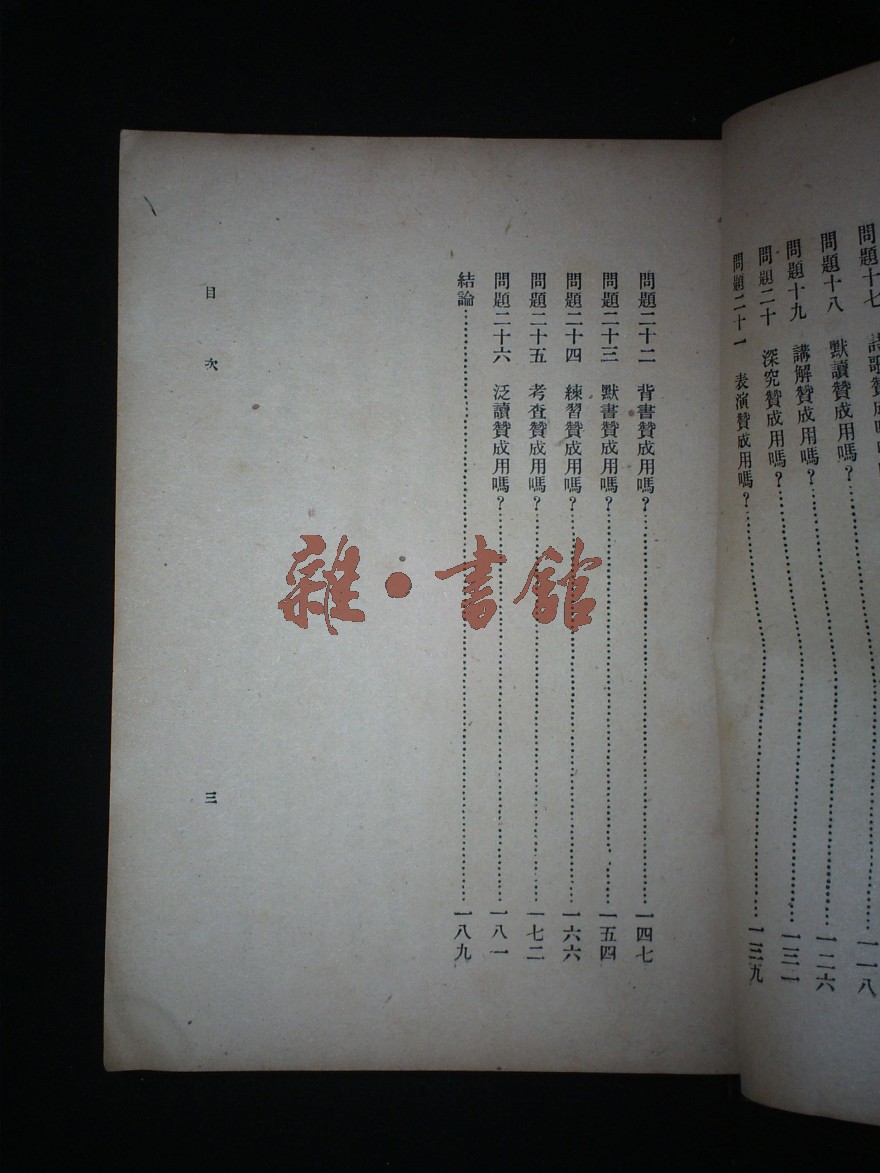 問題十七 詩歌贊成
問題十八 默讀贊成用嗎？……一一八
問題十九 講解贊成用嗎？……一二六
問題二十 深究贊成用嗎？……一三一
問題二十一 表演贊成用嗎？……一三九
問題二十二 背書贊成用嗎？……一四七
問題二十三 默書贊成用嗎？……一五四
問題二十四 練習贊成用嗎？……一六六
問題二十五 考查贊成用嗎？……一七二
問題二十六 泛讀贊成用嗎？……一八一
結論……一八九
目次
三
雜·書館